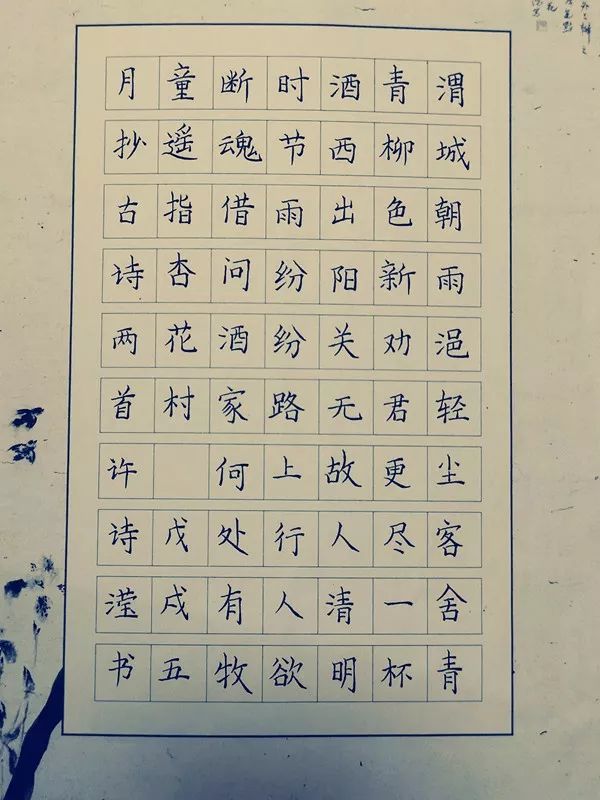 渭城朝雨浥轻尘客舍青
青柳色新劝君更尽一杯
酒西出阳关无故人清明
时节雨纷纷路上行人欲
断魂借问酒家何处有牧
童遥指杏花村 戊戌五
月抄古诗两首许诗滢书